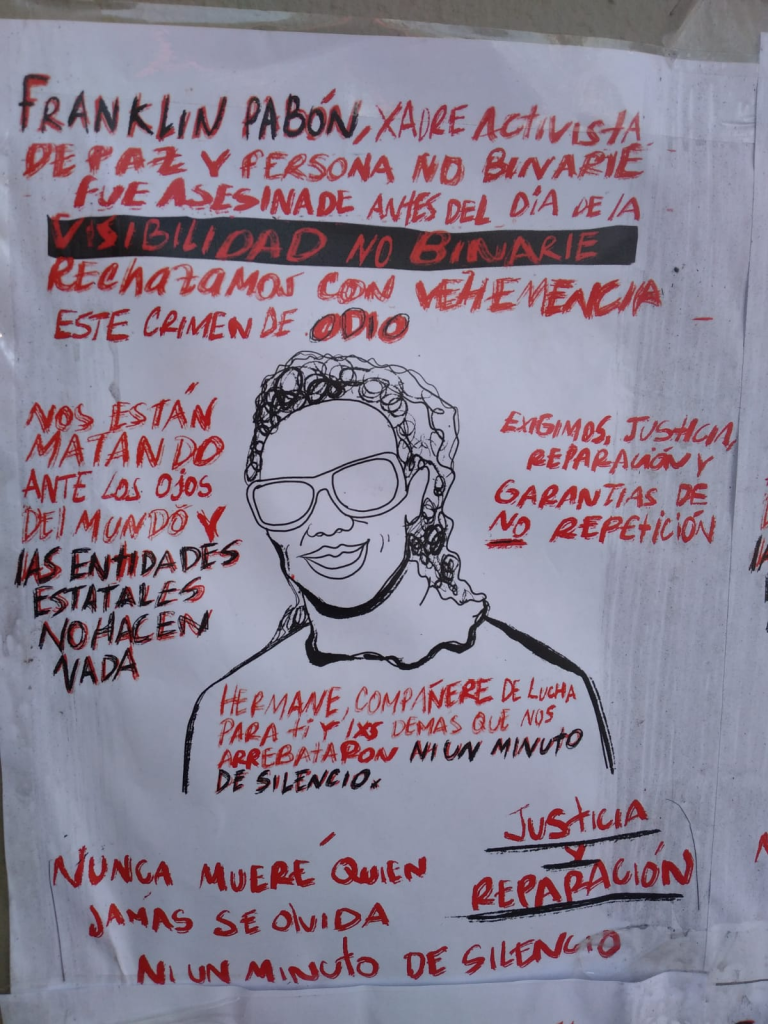 FRANKLIN PABÓN, XADRE ACTIVISTA
DE PAZ Y PERSONA NO BINARIE
FUE ASESINADE ANTES DEL DÍA DE LA
VISIBILIDAD NO BINARIE
RECHAZAMOS CON VEHEMENCIA
ESTE CRIMEN DE ODIO
NOS ESTÁN
MATANDO
ANTE LOS OJOS
DEL MUNDO Y
LAS ENTIDADES
ESTATALES
NO HACEN
NADA
EXIGIMOS, JUSTICIA,
REPARACIÓN Y
GARANTIAS DE
NO REPETICIÓN
HERMANE, COMPAÑERE DE LUCHA
PARA TI Y LXS DEMAS QUE NOS
ARREBATARON NI UN MINUTO
DE SILENCIO.
JUSTICIA
Y
REPARACIÓN
NUNCA MUERE QUIEN
JAMÁS SE OLVIDA
NI UN MINUTO DE SILENCIO